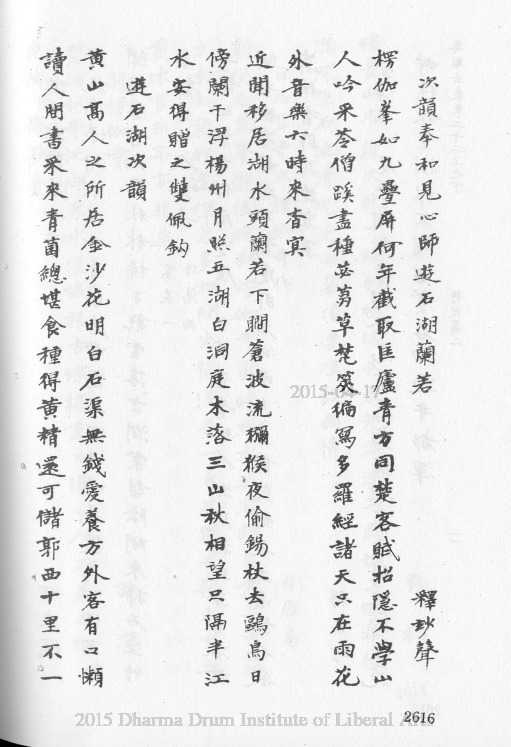 次韻奉和見心師遊石湖蘭若 釋妙聲
楞伽峯如九疊屏何年截取匡廬青方同楚客賦招隱不學山
人吟采苓僧蹊盡種苾蒭草梵筴徧寫多羅經諸天只在雨花
外音樂六時來杳冥
近聞移居湖水頭蘭若下瞯蒼波流獼猴夜偷錫杖去鷗鳥日
傍闌干浮楊州月照五湖白洞庭木落三山秋相望只隔半江
水安得贈之雙佩鈎
遊石湖次韻
黄山高人之所居金沙花明白石渠無錢愛養方外客有口懶
讀人間書采來青菌總堪食種得黄精還可儲郭西十里不一
2015-04-17
2616
2015 Dharma Drum Institute of Liberal Arts